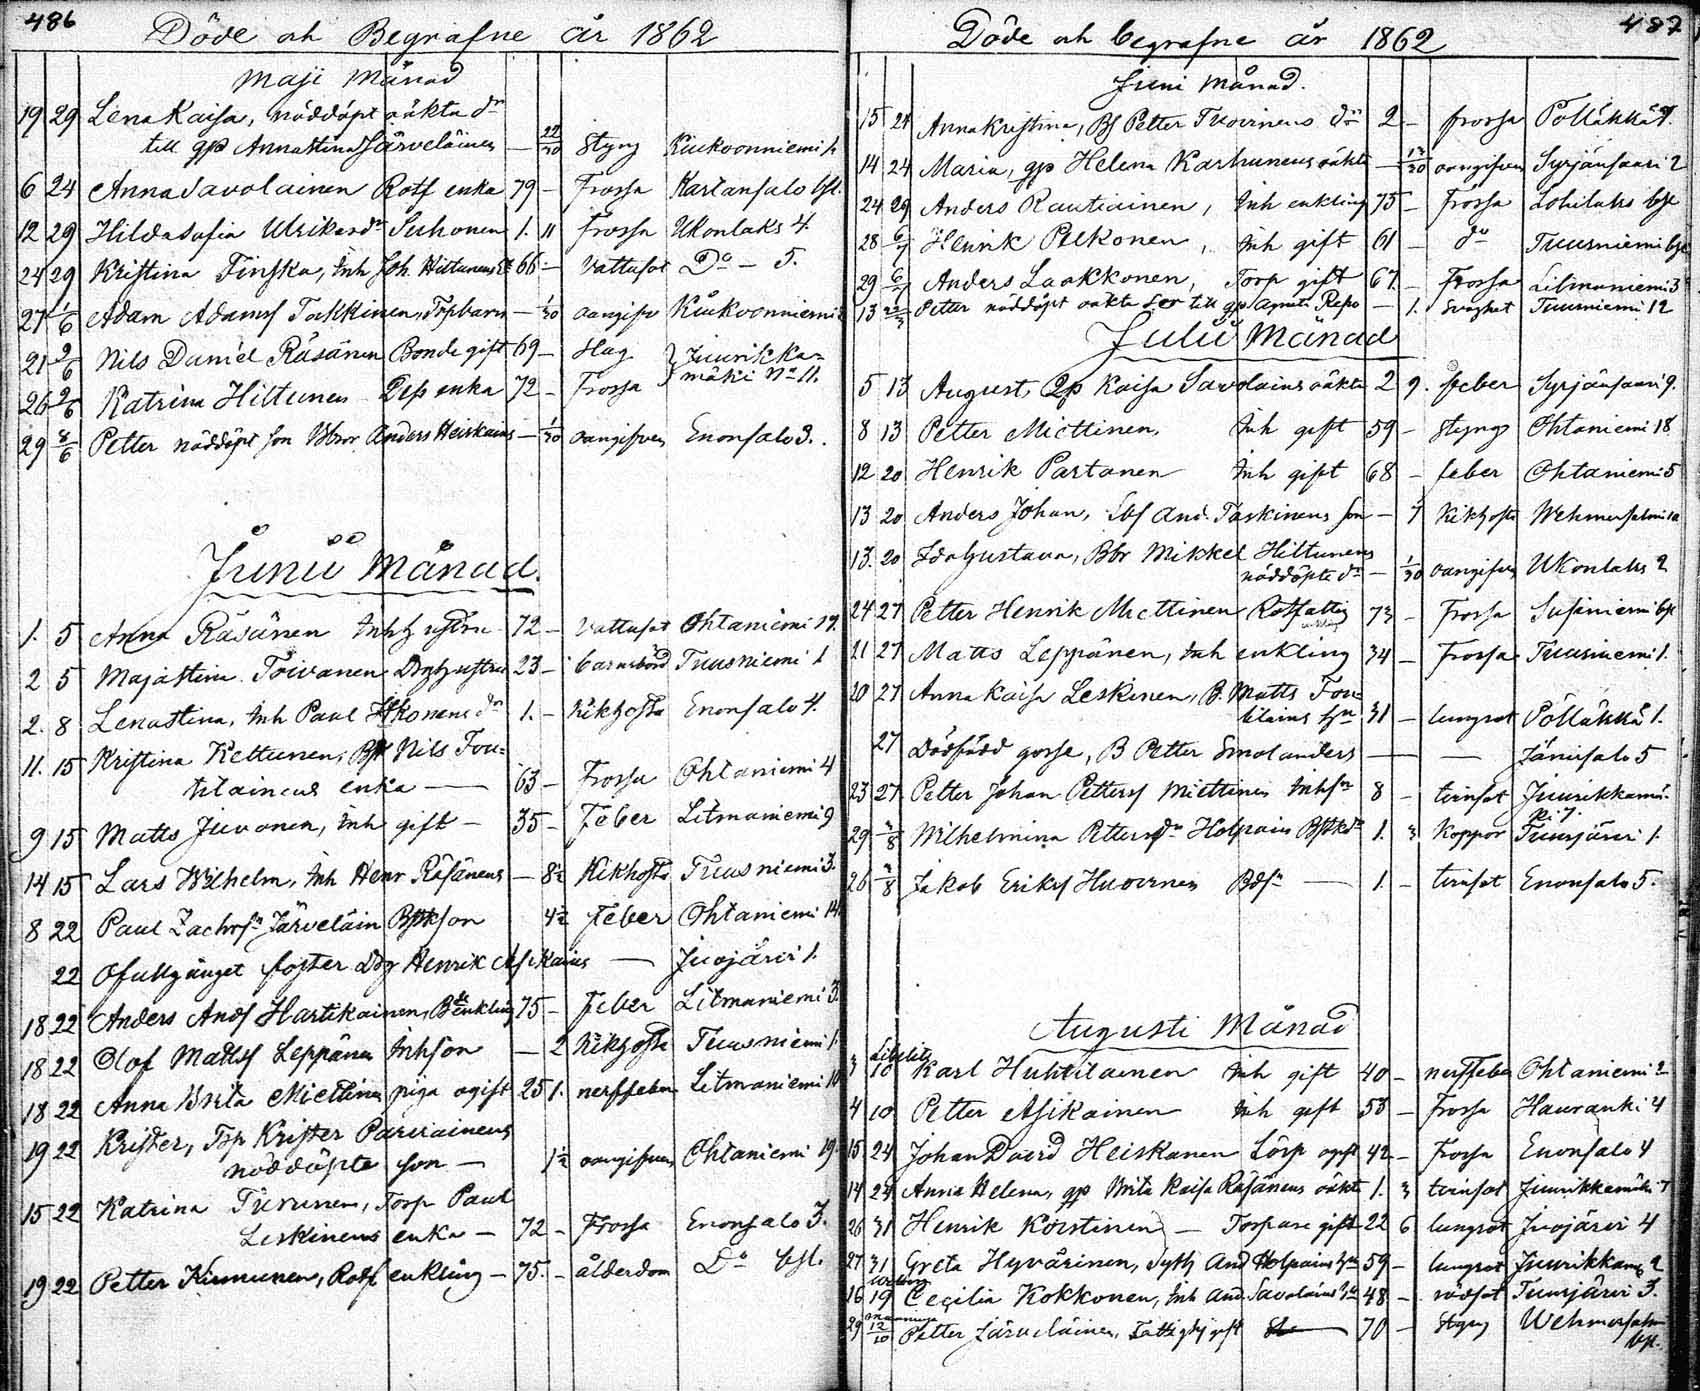 486
Döde och Begrafne år 1862
Maji Månad
19 29 Lena Kaisa, nöddöpt oäkta dr
till gp Annastina Järveläinen — 22/30 Styng Kiukoonniemi 1.
6 24 Anna Savolainen Rotf enka 79 — Frossa Kartansalo bst.
12 29 Hilda Sofia Ulriksdr Suhonen 1. 11 Frossa Ukonlaks 4.
24 29 Kristina Finska, Inh Joh. Hiltunens E. 66 — Vattusot Do — 5.
27 1/6 Adam Adamsf Takkinen, Torpbarn — 1/30 oangifv Kiukoonniemi
21 2/6 Nils Daniel Räsänen Bonde gift 69 — Slag } Juurikka-
26 2/6 Katrina Hiltunen Dess enka 72 — Frossa } mäki No 11.
29 8/6 Petter nöddöpt son Anders Heiskains — 1/30 oangifven Enonsalo 3.
Junii Månad.
1. 5 Anna Räsänen Inh hustru 72 — Vattusot Ohtaniemi 19.
2 5 Majastina Toivanen hustru 23 — barnsbörd Tuusniemi 1
2. 8 Lenastina, Inh Paul Itkonens dr 1. — Kikhosta Enonsalo 4.
11. 15 Kristina Kettunen, Nils Tou=
tilainens enka — 63 — Frossa Ohtaniemi 4
9 15 Matts Juvonen, Inh gift — 35 — Feber Litmaniemi 9
14 15 Lars Wilhelm, Inh Henr Räsänens — 8½ Kikhosta Tuusniemi 3.
8 22 Paul Zachrsn Järveläin Bstkson 4½ Feber Ohtaniemi 14.
22 Ofullgånget foster Henrik Asikains — Juojärvi 1.
18 22 Anders Andsf Hartikainen, Bde enkling 75 — Feber Litmaniemi 3.
18 22 Olof Mattsf Leppänen Inhson — 2 Kikhosta Tuusniemi 1.
18 22 Anna Brita Miettinen piga ogift 25 1. nerffeber Litmaniemi 10
19 22 Krister, Torp Krister Parviainens
nöddöpte son — 1½ oangifven Ohtaniemi 19.
15 22 Katrina Turunen, Torp Paul
Leskinens enka — 72 — Frossa Enonsalo 3.
19 22 Petter Kinnunen, Rotf enkling — 75. — ålderdom Do bst.
487
Döde och begrafne år 1862
Juni Månad.
15 24 Anna Kristina, Bs Petter Tuovinens dr 2 — frossa Pölläkkä 9.
14 24 Maria, gp Helena Karhunens oäkta — 12/30 oangifven Syrjänsaari 2
24 29 Anders Rautiainen, Inh enkling 75 — Frossa Lohilaks bst
28 6/7 Henrik Pelkonen, Inh gift 61 — do Tuusniemi bst
29 6/7 Anders Laakkonen, Torp gift 67. — Frossa Litmaniemi 3
13 Petter nöddöpt oäkta son till gp Agneta Repo — 1. Svaghet Tuusniemi 12
Julii Månad
5 13 August, Qp Kaisa Savolains oäkta 2 9. feber Syrjänsaari 9.
8 13 Petter Miettinen, Inh gift 59 — styng Ohtaniemi 18
12 20 Henrik Partanen Inh gift 68 — feber Ohtaniemi 5
13 20 Anders Johan, And. Taskinens son — Kikhosta Wehmersalmi 10
13. 20 Ida Gustava, Bbr Mikkel Hiltunens
nöddöpte dr — 1/30 oangifven Ukonlaks 2
24 27 Petter Henrik Miettinen Rotfattig 73 — Frossa Susiniemi bst
21 27 Matts Leppänen, Inh enkling 34 — Frossa Tuusniemi 1.
20 27 Anna Kaisa Leskinen, B. Matts Tou=
tilains hu 31 — lungsot Pölläkkä 1.
27 Dödfödd gosse, B Petter Smolanders — — Jänissalo 5
23 27 Petter Johan Pettersf Miettinen Inhsn 8 — tvinsot Juurikkamä-
ki 7.
29 3/8 Wilhelmina Pettersdr Holpain Bstkdr 1. 3 Koppor Tuusjärvi 1.
26 3/8 Jakob Eriksf Huovinen Bdsn — 1. — tvinsot Enonsalo 5.
Augusti Månad
Libelits
3 10 Karl Huhtilainen Inh gift 40 — nerffeber Ohtaniemi 2
4 10 Petter Asikainen Inh gift 53 — Frossa Hauranki 4
15 24 Johan David Heiskanen Lösp ogift 42 — Frossa Enonsalo 4
14 24 Anna Helena, gp Brita Kaisa Räsänens oäkta 1. 3 tvinsot Juurikkamäki 7
26 31 Henrik Korstinen — Torpare gift 22 6 lungsot Juojärvi 4
27 31 Greta Hyvärinen, And Holpains hu 59 — lungsot Juurikkamä 2
16 19 Cecilia Kokkonen, Inh And. Savolains hu 48 — rödsot Tuusjärvi 3.
29 12/10 Petter Järveläinen, Fattighj gift 70 — Styng Wehmersalmi
bst.